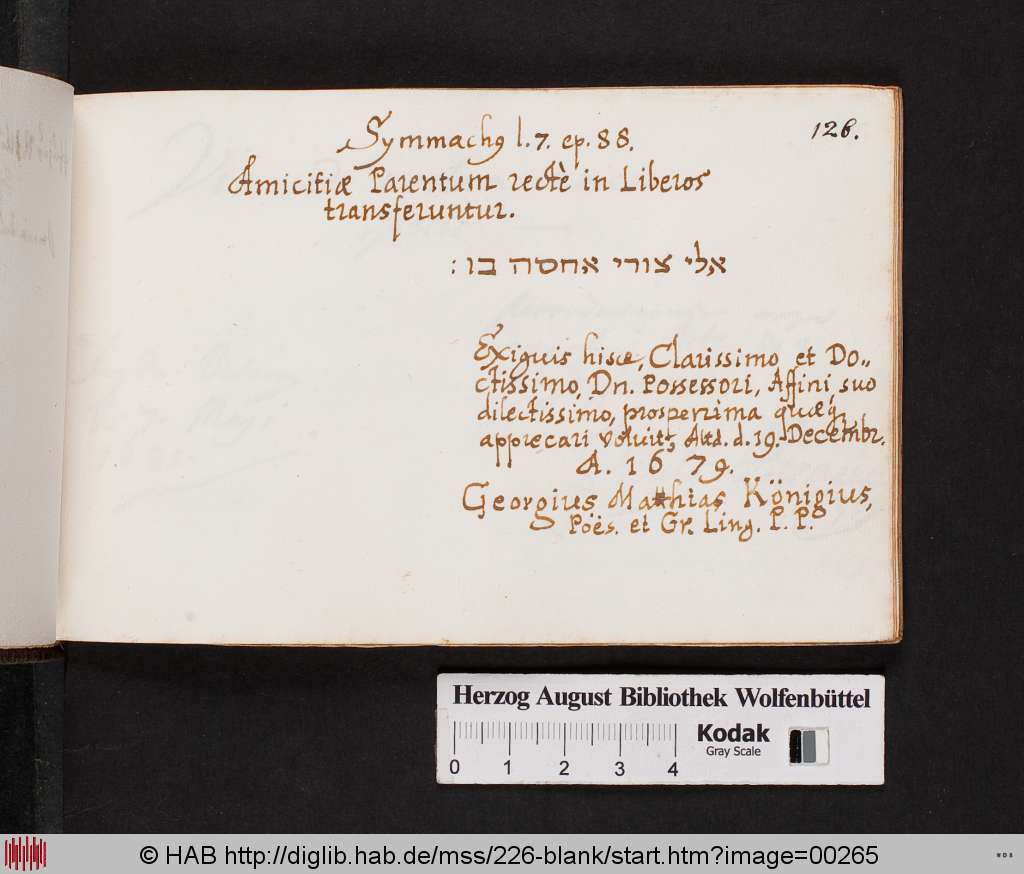 126.
Symmachq l. 7. ep. 88.
Amicitiæ Parentum rectè in Liberos
transferuntur.
אלי צורי אחסה בו :
Exiguis hisce, Clarissimo et Do-
ctissimo, Dn. Possessori, Affini suo
dilectissimo, prosperrima quæq.
apprecari voluit, Altd. d. 19. Decembr.
A. 1679.
Georgius Matthias Königius,
Poës. et Gr. Ling. P. P.
Herzog August Bibliothek Wolfenbüttel
Kodak
Gray Scale
0 1 2 3 4
© HAB http://diglib.hab.de/mss/226-blank/start.htm?image=00265
WDB